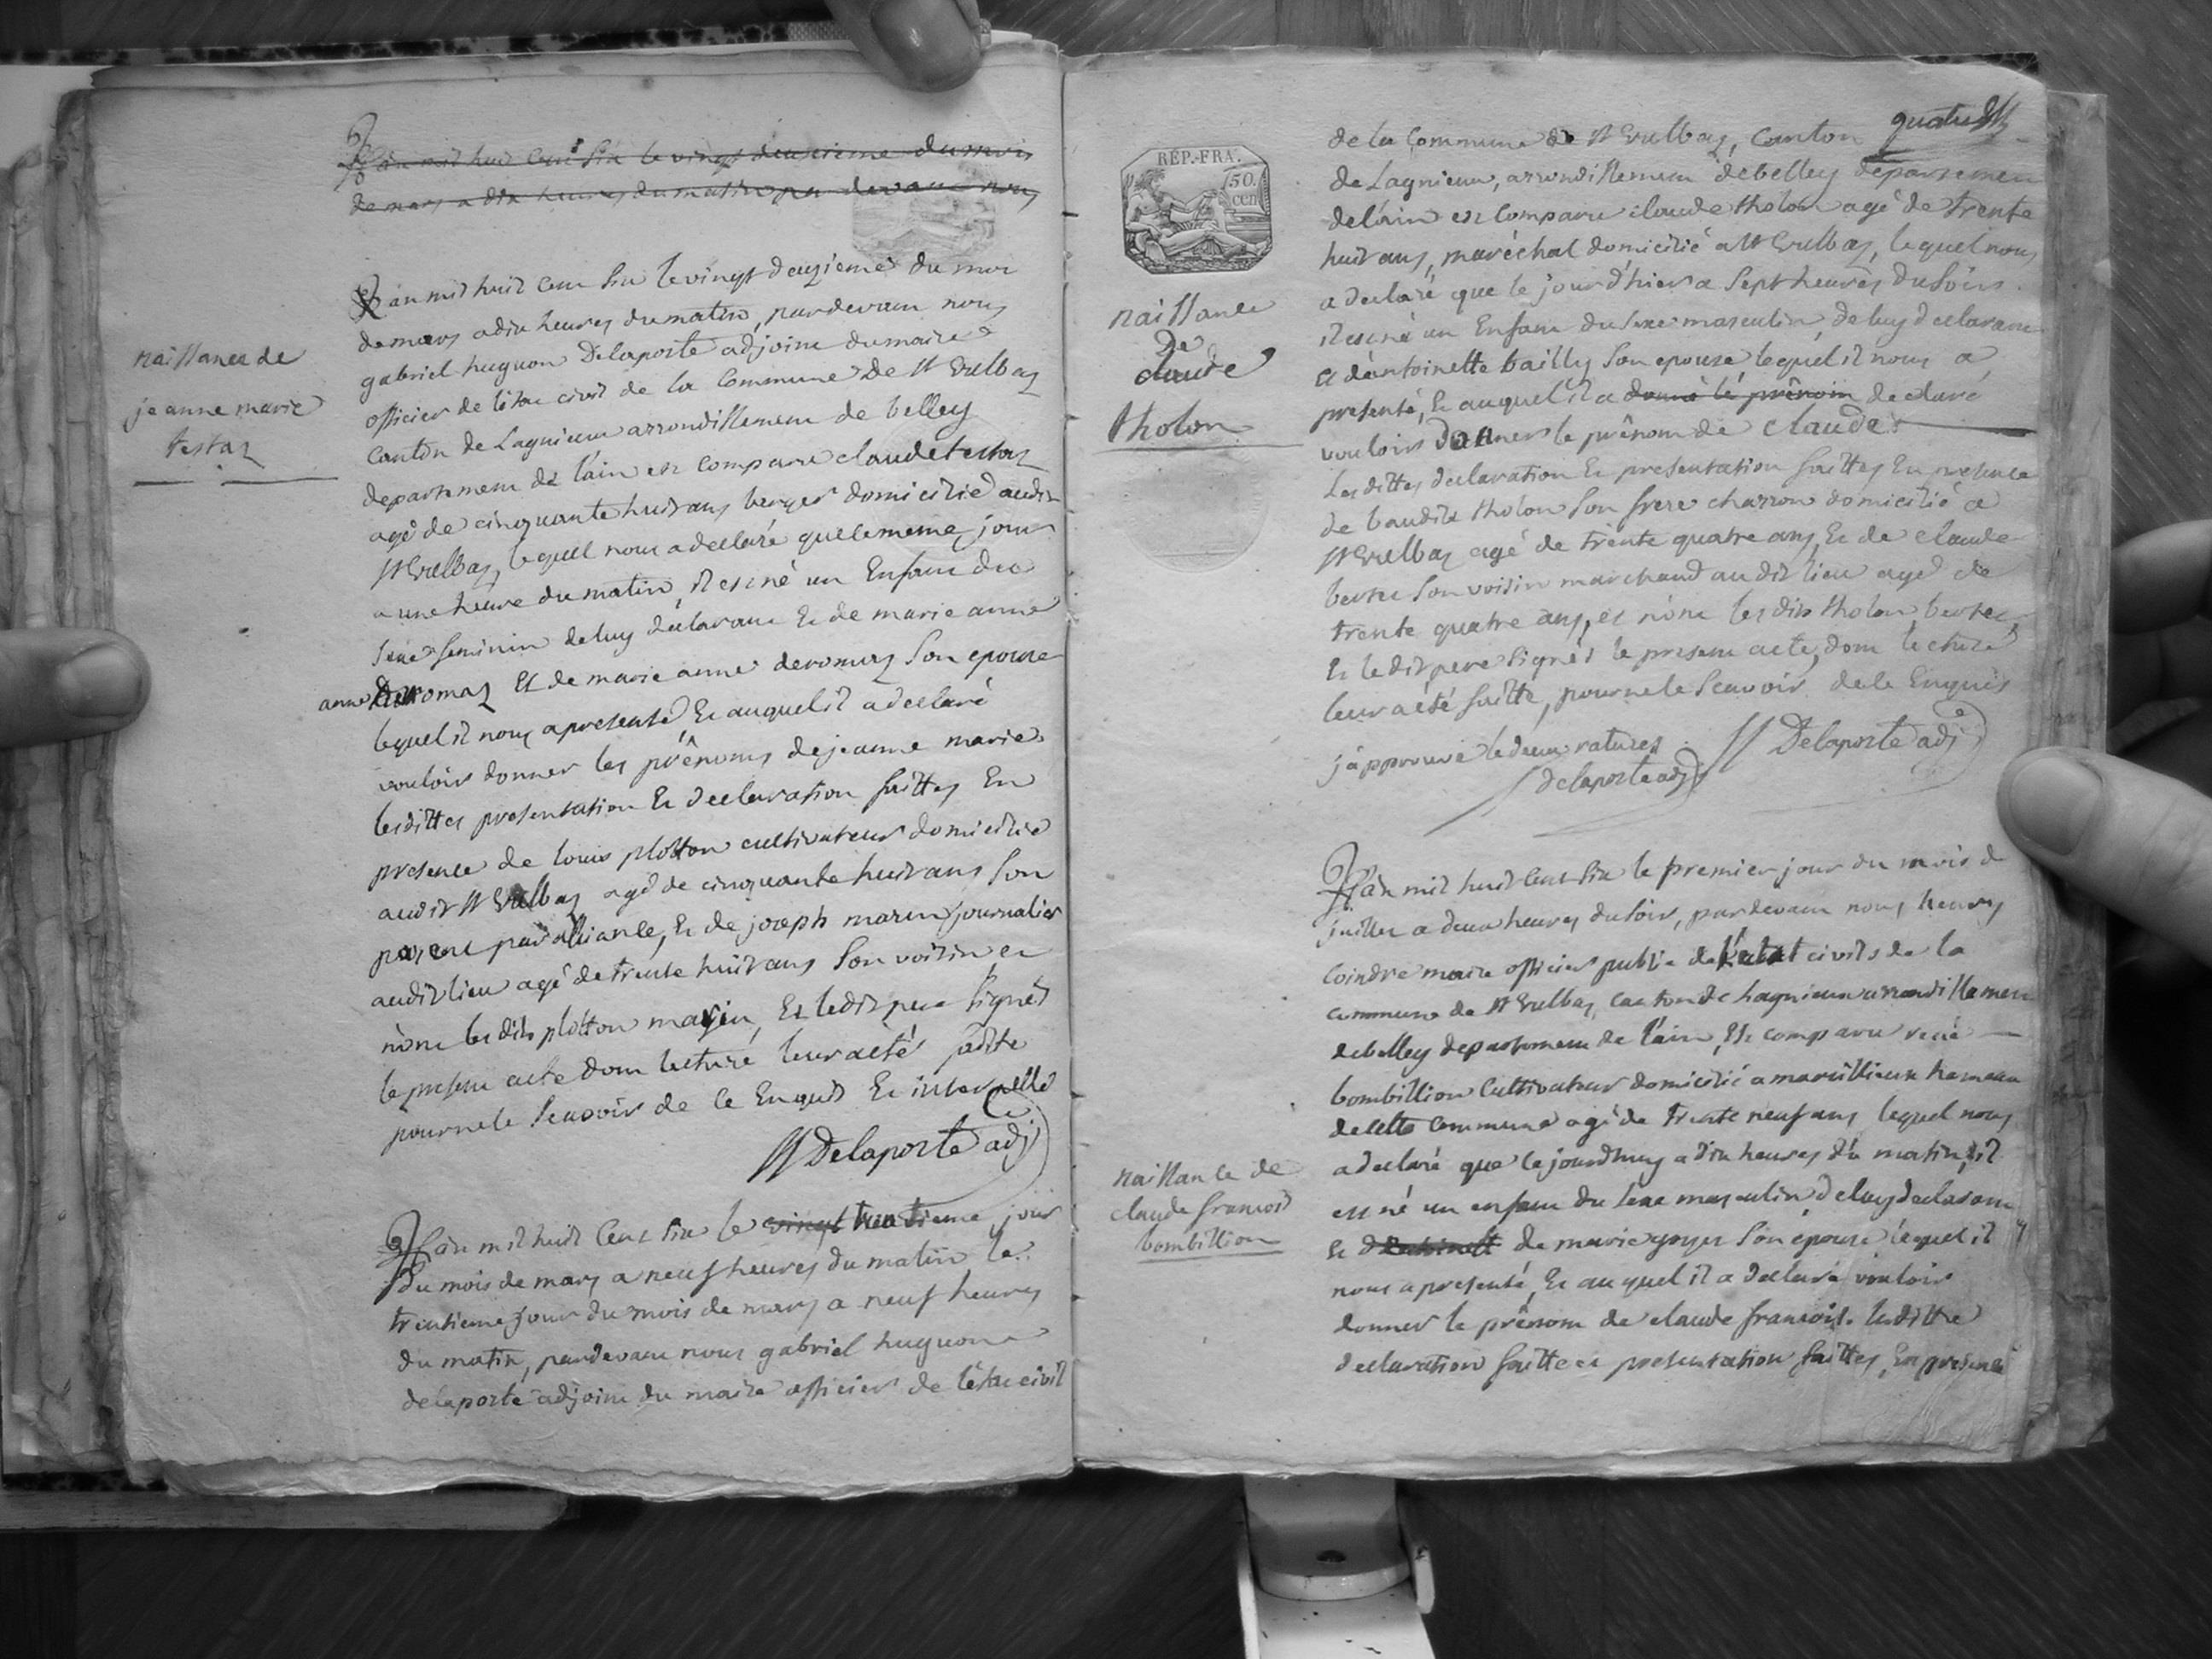 L'an mil huit cent six le vingt deuxieme du mois
de mars a dix heures du matin par devant nous
naissance de
jeanne marie
testaz
L'an mil huit cent six le vingt deuzieme du moi
de mars a dix heures du matin, pardevant nous
gabriel huguon Delaporte adjoint du maire
officier de l'état civil de la commune de St Vulbaz
canton de Lagnieu arrondissement de belley
departement de l'ain est comparu claude testaz
agé de cinquante huit ans berger domicilié audit
St Vulbaz, lequel nous a declaré que le meme jour
a une heure du matin, il est né un Enfant du
sexe feminin de luy declarant Et de marie anne
anne deromaz Et de marie anne deromaz son epouse
lequel il nous a presenté, Et auquel il a declaré
vouloir donner les prênoms de jeanne marie
lesdittes presentation Et declaration faittes En
presence de louis plotton cultivateur domicilié
audit St Vulbaz agé de cinquante huit ans son
parent par alliance, Et de joseph marin journalier
audit lieu agé de trente huit ans son voisin et
n'ont les dits plotton marin, Et ledit pere signés
le present acte dont lecture leur a été faitte
pour ne le scavoir de ce Enquis Et interpellé
Delaporte adj
L'an mil huit cent six le vingt trentieme jour
du mois de mars a neuf heures du matin le
trentieme jour du mois de mars a neuf heures
du matin, pardevant nous gabriel huguon
delaporte adjoint du maire officier de l'état civil
quatre
RÉP.-FRA.
50.
cen
naissance
De
claude
tholon
de la commune de St Vulbaz, canton
de Lagnieu, arrondissement de belley departement
de l'ain est comparu claude tholon agé de trente
huit ans, maréchal domicilié a St Vulbaz, lequel nous
a declaré que le jour d'hier a sept heures du soir
il est né un Enfant du sexe masculin de luy declarant
Et d'antoinette bailly son epouse, lequel il nous a
presenté, Et auquel il a donné le prênom declaré
vouloir donner le prênom de claude
Les dittes declaration Et presentation faittes En presence
de baudile tholon son frere charron domicilié a
St Vulbaz agé de trente quatre ans, Et de claude
son voisin marchand audit lieu agé de
trente quatre ans, et n'ont les dits tholon,
Et ledit pere signés le present acte, dont lecture
leur a été faitte, pour ne le scavoir de ce Enquis
j'approuve le deux ratures Delaporte adj
delaporte adj
L'an mil huit cent six le premier jour du mois de
juillet a deux heures du soir, pardevant nous
coindre maire officier public de l'etat civils de la
commune de St Vulbaz, canton de Lagnieu arrondissement
de belley departement de l'ain, Est comparu
bombillion Cultivateur domicilié a marcillieux hameau
de cette commune agé de trente neuf ans lequel nous
a declaré que le jourdhuy a dix heures du matin, il
est né un enfant du sexe masculin de luy declarant
Et de marie son epouse lequel il
nous a presenté, Et auquel il a declaré vouloir
donner le prênom de claude francois. lesditte
declaration faitte et presentation faittes, En presence
naissance de
claude francois
bombillion